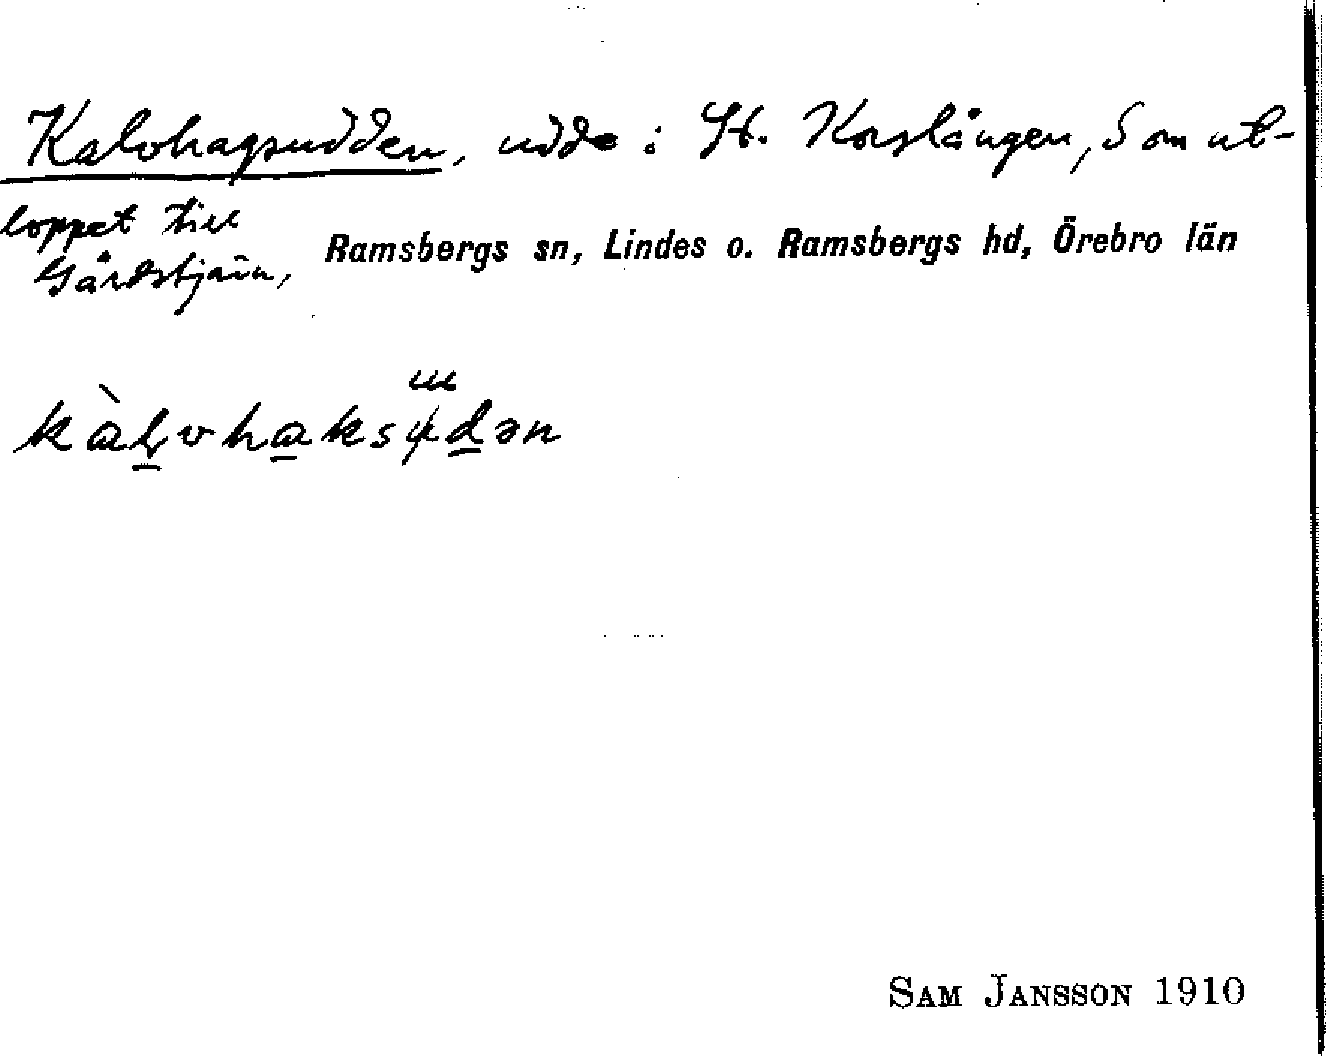 Kalvhagsudden, udde i St. Korslången, S om ut-
loppet till
Gårdstjärn,
Ramsbergs sn, Lindes o. Ramsbergs hd, Örebro län
kàḻvha̱ksu̇ḏən
SAM JANSSON 1910